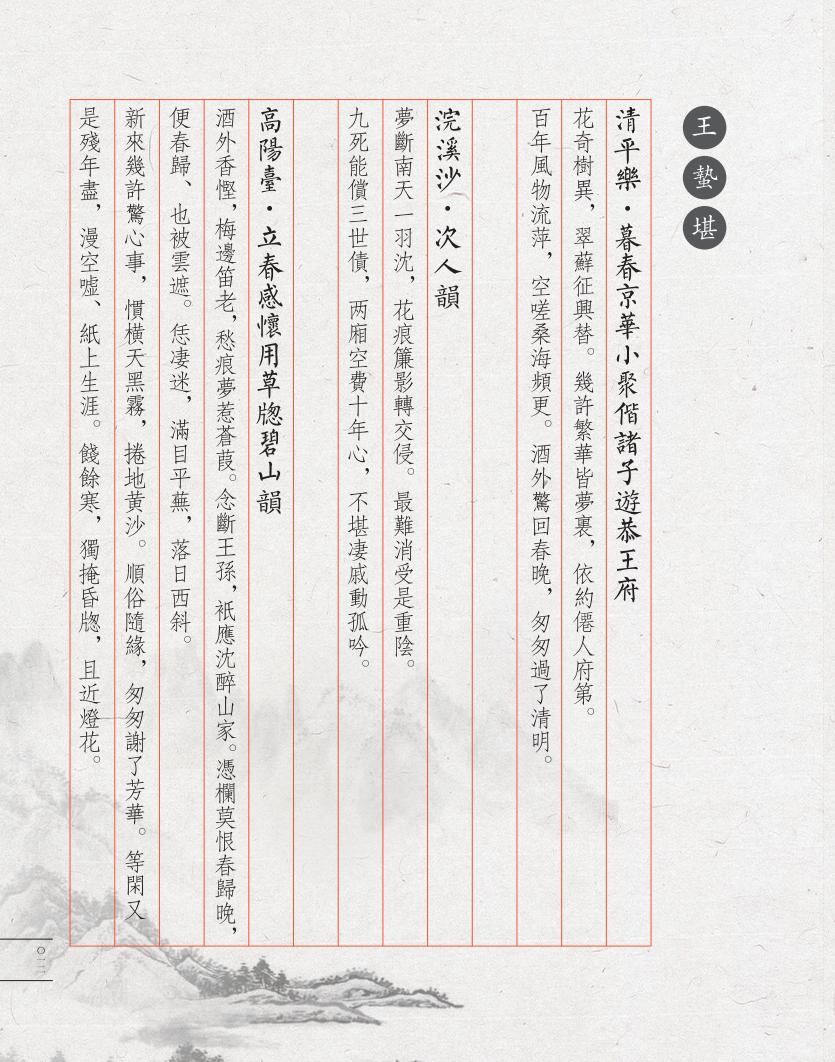 王蟄堪
清平樂·暮春京華小聚偕諸子遊恭王府
花奇樹異，翠蘚征興替。幾許繁華皆夢裏，依約僊人府第。
百年風物流萍，空嗟桑海頻更。酒外驚回春晚，匆匆過了清明。
浣溪沙·次人韻
夢斷南天一羽沈，花痕簾影轉交侵。最難消受是重陰。
九死能償三世債，两廂空費十年心，不堪凄戚動孤吟。
高陽臺·立春感懷用草牕碧山韻
酒外香慳，梅邊笛老，愁痕夢惹蒼葭。念斷王孫，祇應沈醉山家。憑欄莫恨春歸晚，
便春歸、也被雲遮。恁凄迷，滿目平蕪，落日西斜。
新來幾許驚心事，慣橫天黑霧，捲地黄沙。順俗隨緣，匆匆謝了芳華。等閑又
是殘年盡，漫空噓、紙上生涯。餞餘寒，獨掩昏牕，且近燈花。
〇一二